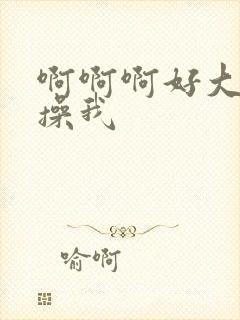 啊啊啊好大
操我
喻啊